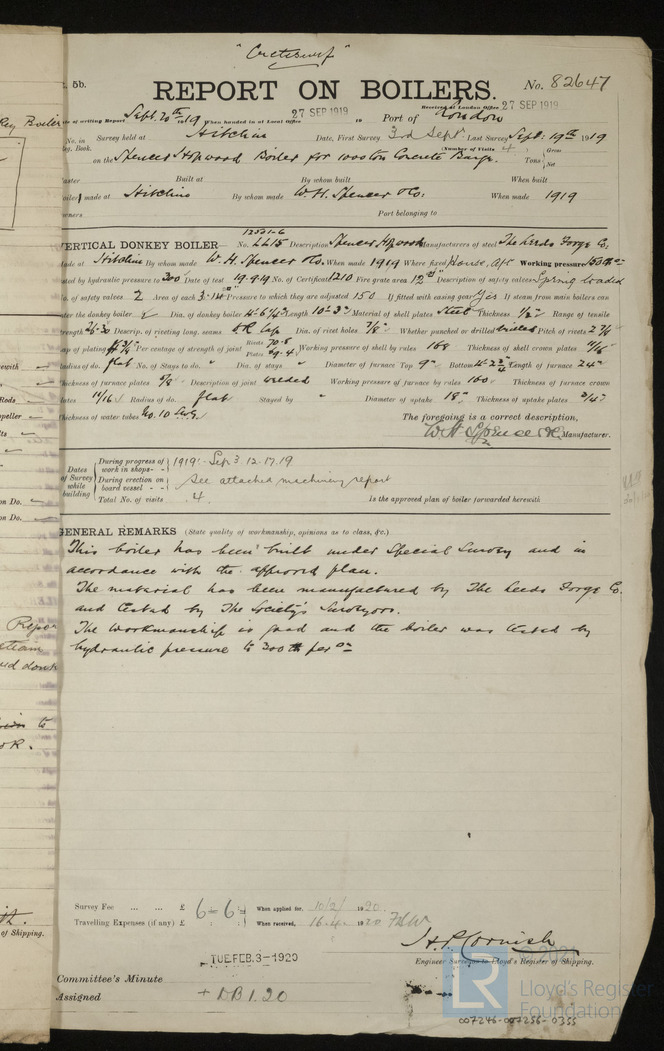 "Cretesurf"
5b.
REPORT ON BOILERS.
No. 82647
Received at London Office 27 SEP 1919
Date of writing Report Sept. 20th 1919 When handed in at Local Office 27 SEP 1919 Port of London
No. in Survey held at Hitchin Date, First Survey 3rd Sept Last Survey Sept: 19th 1919
Reg. Book. (Number of Visits 4)
on the Spencer Hopwood Boiler for 1000 ton Concrete Barge. Tons Gross Net
Master Built at By whom built When built
Boilers made at Hitchin By whom made W. H. Spencer & Co: When made 1919
Owners Port belonging to
VERTICAL DONKEY BOILER No. Description Spencer Hopwood Manufacturers of steel The Leeds Forge Co.
Made at Hitchin By whom made W. H. Spencer & Co. When made 1919 Where fixed House, Aft Working pressure 150
tested by hydraulic pressure to 300 Date of test 19.9.19 No. of Certificate 1210 Fire grate area 12 Description of safety valves Spring loaded
No. of safety valves 2 Area of each 3.14 Pressure to which they are adjusted 150 If fitted with casing gear Yes If steam from main boilers can
enter the donkey boiler Dia. of donkey boiler 4'-6¼" Length 10'-3" Material of shell plates Steel Thickness ½" Range of tensile
strength 26-30 Descrip. of riveting long. seams DR Lap Dia. of rivet holes 7/8" Whether punched or drilled drilled Pitch of rivets
Lap of plating Per centage of strength of joint Rivets 70.8 Plates 69.4 Working pressure of shell by rules 168 Thickness of shell crown plates 11/16
Radius of do. flat No. of Stays to do. " Dia. of stays " Diameter of furnace Top 9" Bottom Length of furnace 24"
Thickness of furnace plates 5/8 Description of joint welded Working pressure of furnace by rules 160 Thickness of furnace crown
plates 11/16 Radius of do. flat Stayed by " Diameter of uptake 18" Thickness of uptake plates 3/4"
Thickness of water tubes No. 10 SWG. The foregoing is a correct description,
W H Spencer & Co Manufacturer.
Dates of Survey while building
During progress of work in shops 1919:- Sep 3. 12. 17. 19
During erection on board vessel See attached machinery report
Total No. of visits 4. Is the approved plan of boiler forwarded herewith
GENERAL REMARKS (State quality of workmanship, opinions as to class, &c.)
This boiler has been built under Special Survey and in
accordance with the approved plan.
The material has been manufactured by The Leeds Forge Co.
and tested by The Society's Surveyors.
The workmanship is good and the boiler was tested by
hydraulic pressure to 300 lb per
Survey Fee ... ... £ 6 - 6 When applied for, 10/2/1920.
Travelling Expenses (if any) £ When received, 16.4.1920
H. P. Cornish
Engineer Surveyor to Lloyd's Register of Shipping.
TUE. FEB. 3 - 1920
Committee's Minute
Assigned + DB 1.20
LR
© 2021
Lloyd's Register
Foundation
007246-007256-0355